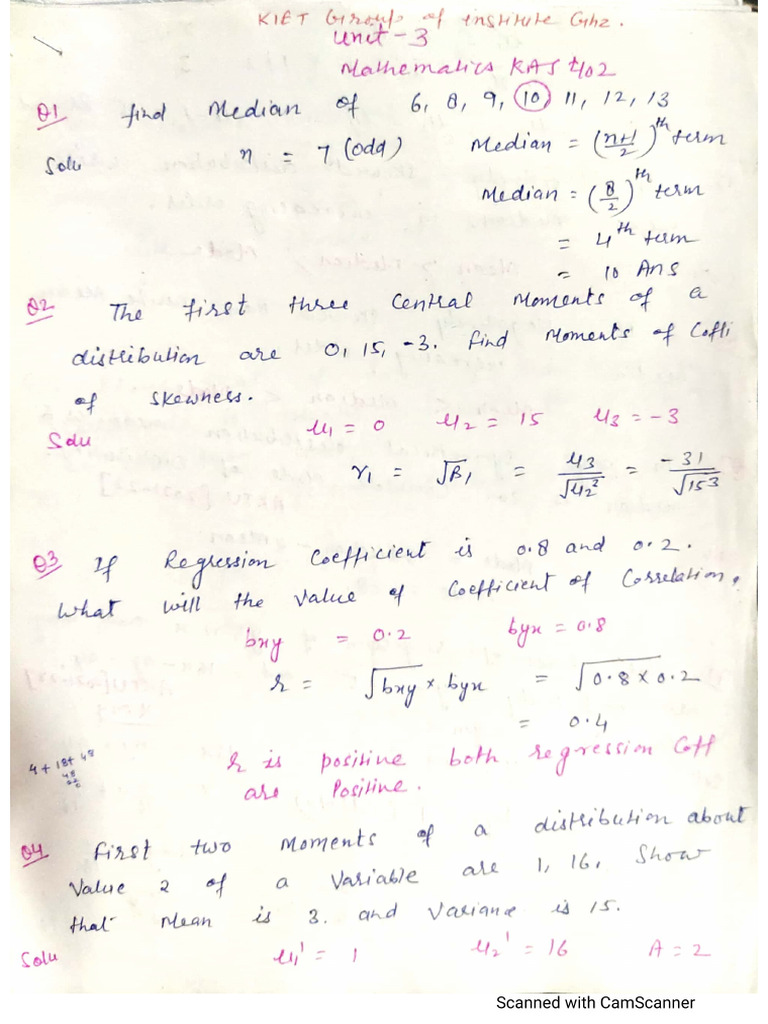 KIET Group of institute Ghz.
Unit-3
Mathematics KAS 402
Q1 find Median of 6, 8, 9, 10, 11, 12, 13
Solu n = 7 (odd) Median = (n+1/2)th term
Median = (8/2)th term
= 4th term
= 10 Ans
Q2 The first three Central Moments of a
distribution are 0, 15, -3. find Moments of Coffi
of skewness.
Solu μ1 = 0 μ2 = 15 μ3 = -3
γ1 = √β1 = μ3/√μ2² = -31/√15³
Q3 If Regression Coefficient is 0.8 and 0.2.
what will the value of Coefficient of Correlation.
bxy = 0.2 byx = 0.8
r = √bxy × byx = √0.8 × 0.2
= 0.4
r is positive both regression Coff
are Positive.
4 + 18 + 48
Q4 first two Moments of a distribution about
Value 2 of a Variable are 1, 16, Show
that Mean is 3. and Variance is 15.
Solu μ1' = 1 μ2' = 16 A = 2
Scanned with CamScanner